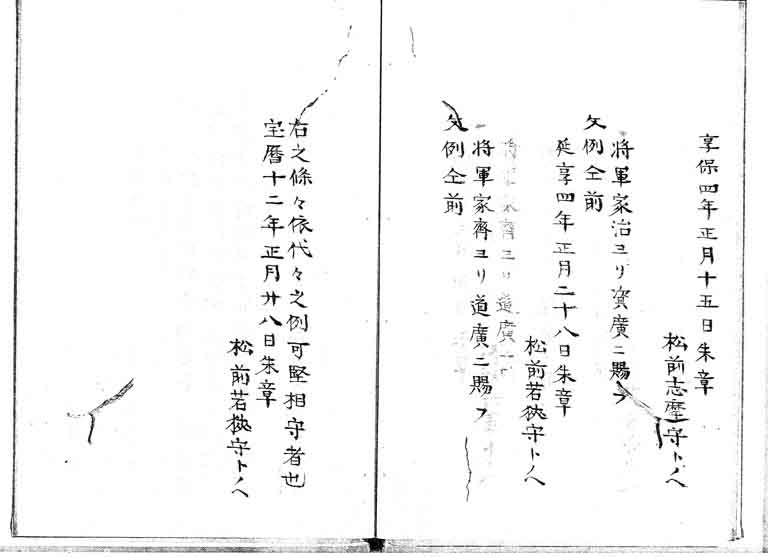 享保四年正月十五日朱章
松前志摩守トノヘ
将軍家治ヨリ資廣ニ賜フ
文例仝前
延享四年正月二十八日朱章
松前若狹守トノヘ
将軍家齊ヨリ道廣ニ賜フ
文例仝前
右之條々依代々之例可堅相守者也
宝暦十二年正月廿八日朱章
松前若狹守トノヘ